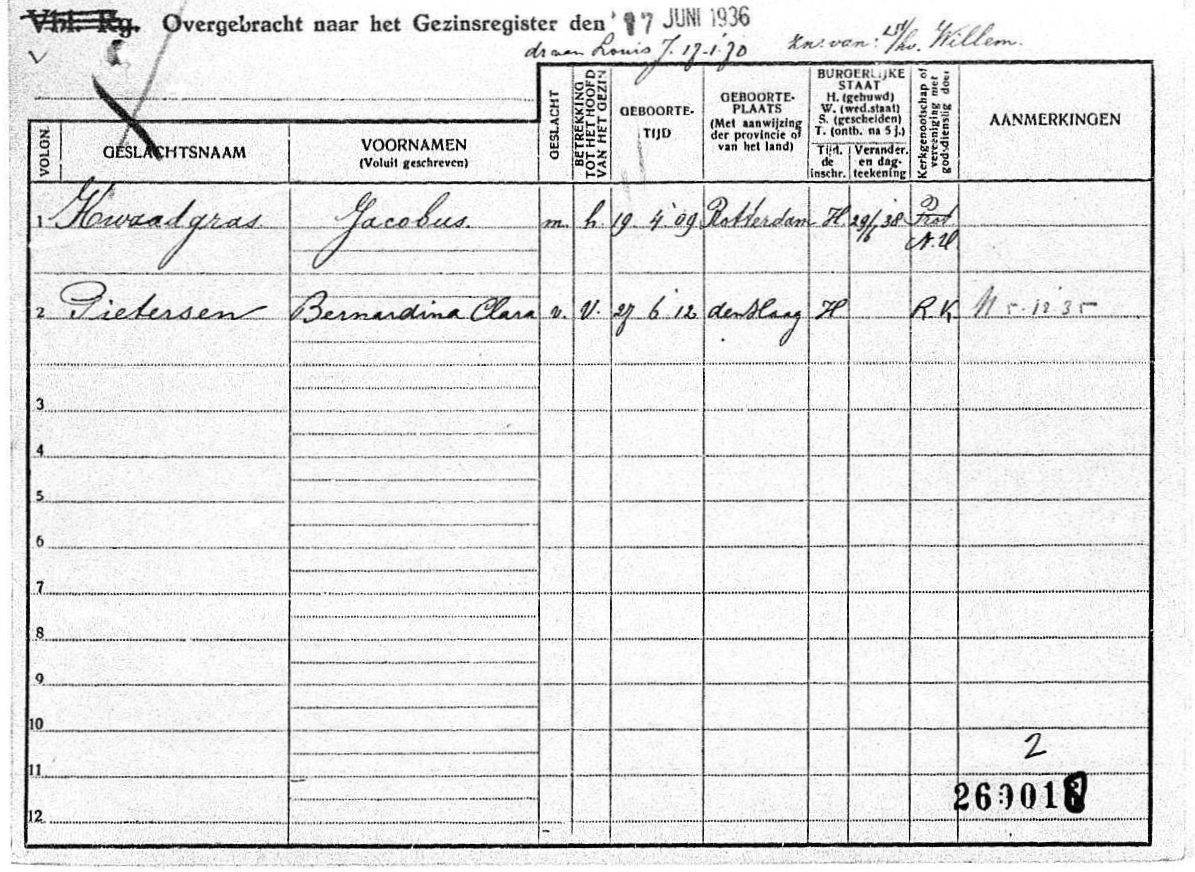 Vbl. Rg. Overgebracht naar het Gezinsregister den 17 JUNI 1936
Louis J. 17.1.70 zn. van: Willem.
VOLGN.
GESLACHTSNAAM
VOORNAMEN
(Voluit geschreven)
GESLACHT
BETREKKING
TOT HET HOOFD
VAN HET GEZIN
GEBOORTE-
TIJD
GEBOORTE-
PLAATS
(Met aanwijzing
der provincie of
van het land)
BURGERLIJKE
STAAT
H. (gehuwd)
W. (wed.staat)
S. (gescheiden)
T. (ontb. na 5 j.)
Tijd.
de
inschr.
Verander.
en dag-
teekening
Kerkgenootschap of
vereeniging met
godsdienstig doel
AANMERKINGEN
1 Kwaadgras Jacobus. m. h. 19 4 '09 Rotterdam H 29/6 '38 Prot
N.H
2 Pietersen Bernardina Clara v. V. 27 6 '12 den Haag H R.K. 5.12.35
3
4
5
6
7
8
9
10
2
11
12